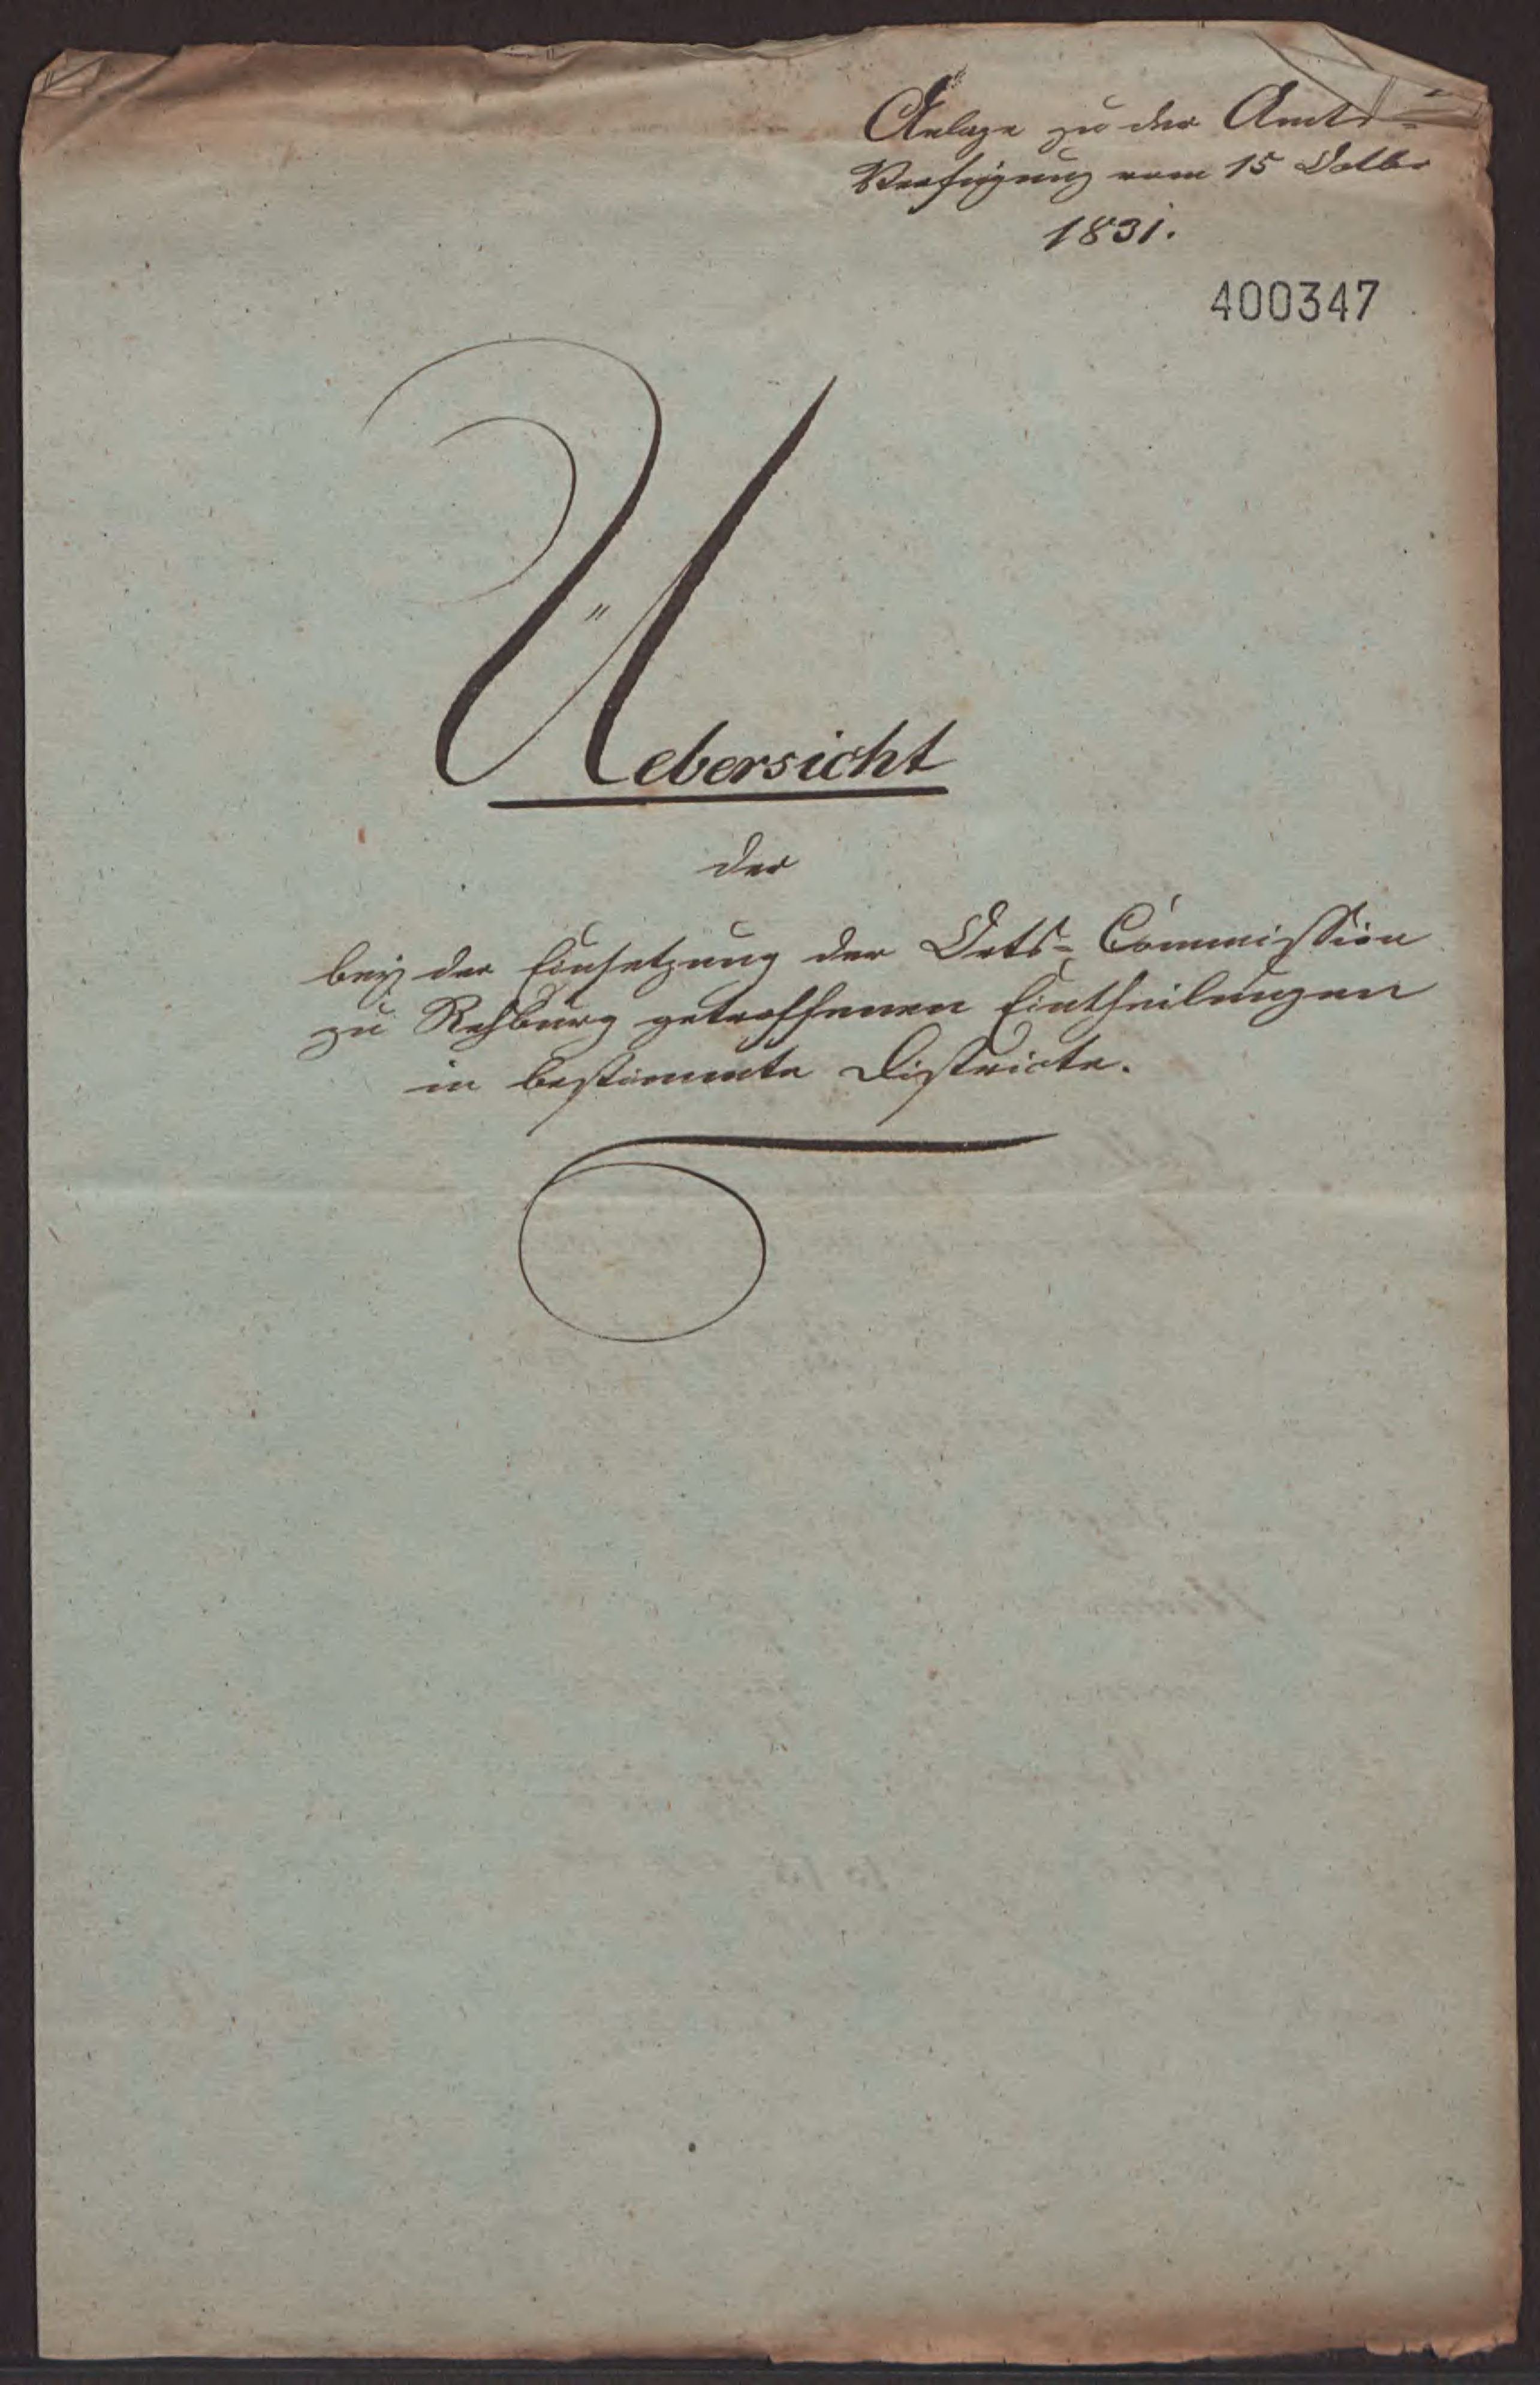 Anlage zu der Amts-
Verfügung vom 15 Octbr
1831.
400347
Uebersicht
der
bey der Einsetzung der Orts-Commission
zu Rehburg getroffenen Eintheilungen
in bestimmte Districte.